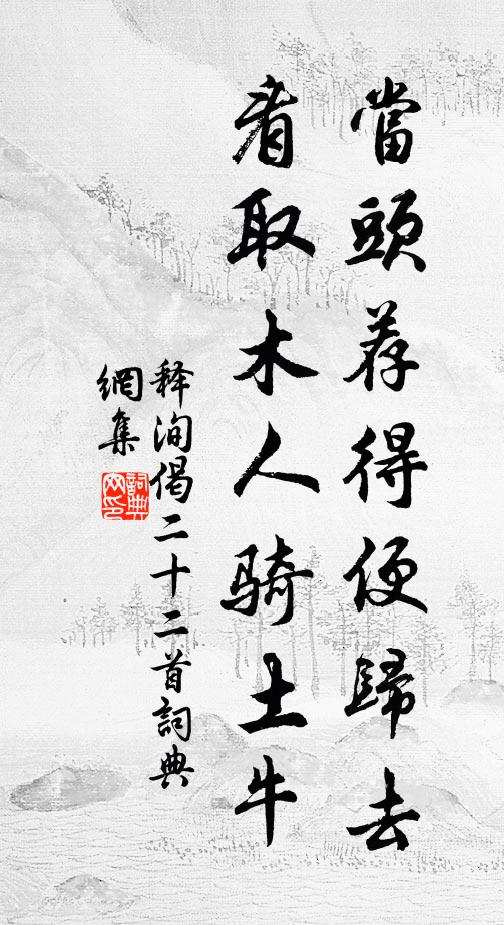 當頭荐得便歸去
看取木人骑土牛
释洵偈二十二首詞典
網集
詞典
网印